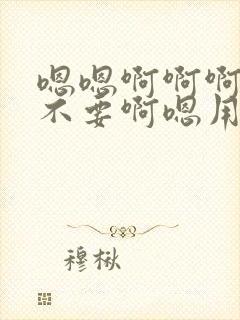 嗯嗯啊啊啊
不要啊嗯用
穆楸